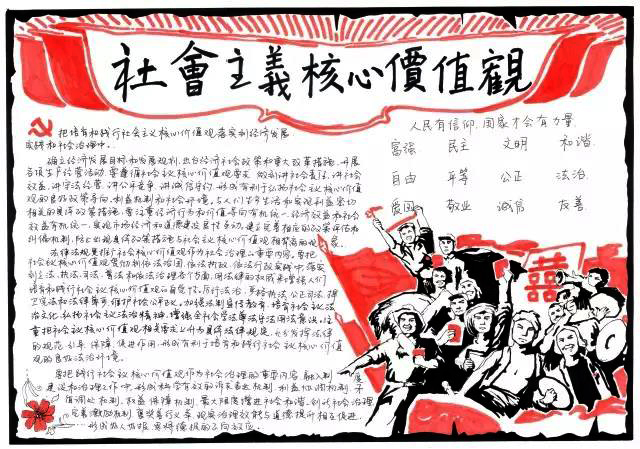 社會主義核心價值觀
把培育和践行社会主义核心价值观落实到经济发展
实践和社会治理中。
确立经济发展目标和发展规划,出台经济社会政策和重大改革措施,开展
各项生产经营活动,要遵循社会主义核心价值观要求,做到讲社会责任,讲社会
效益,讲守法经营,讲公平竞争,讲诚信守约,形成有利于弘扬社会主义核心价值
观的良好政策导向,利益机制和社会环境。与人们生产生活和现实利益密切
相关的具体政策措施,要注重经济行为和价值导向有机统一,经济效益和社会
效益有机统一,实现市场经济和道德建设良性互动。建立完善相应的政策评估和
纠偏机制,防止出现具体政策措施与社会主义核心价值观相背离的现象。
法律法规是推广社会主流价值观的重要保证。要把
社会主义核心价值观贯彻到依法治国,依法执政,依法行政实践中,落实
到立法,执法,司法,普法和依法治理各个方面,用法律的权威来增强人们
培育和践行社会主义核心价值观的自觉性。厉行法治,严格执法,公正司法,捍
卫宪法和法律尊严,维护社会公平正义。加强法制宣传教育,培育社会主义法
治文化,弘扬社会主义法治精神,增强全社会学法尊法守法用法意识。注
重把社会主义核心价值观相关要求上升为具体法律规定,充分发挥法律
的规范,引导,保障,促进作用,形成有利于培育和践行社会主义核心价值
观的良好法治环境。
要把践行社会主义核心价值观作为社会治理的重要内容,融入制度
建设和治理工作中,形成科学有效的诉求表达机制,利益协调机制,矛
盾调处机制,权益保障机制,最大限度增进社会和谐。创新社会治理
完善激励机制,褒奖善行义举,实现治理效能与道德提升相互促进,
形成好人好报,恩将德报的正向效应。
人民有信仰,国家才会有力量
富强 民主 文明 和谐
自由 平等 公正 法治
爱国 敬业 诚信 友善
囍